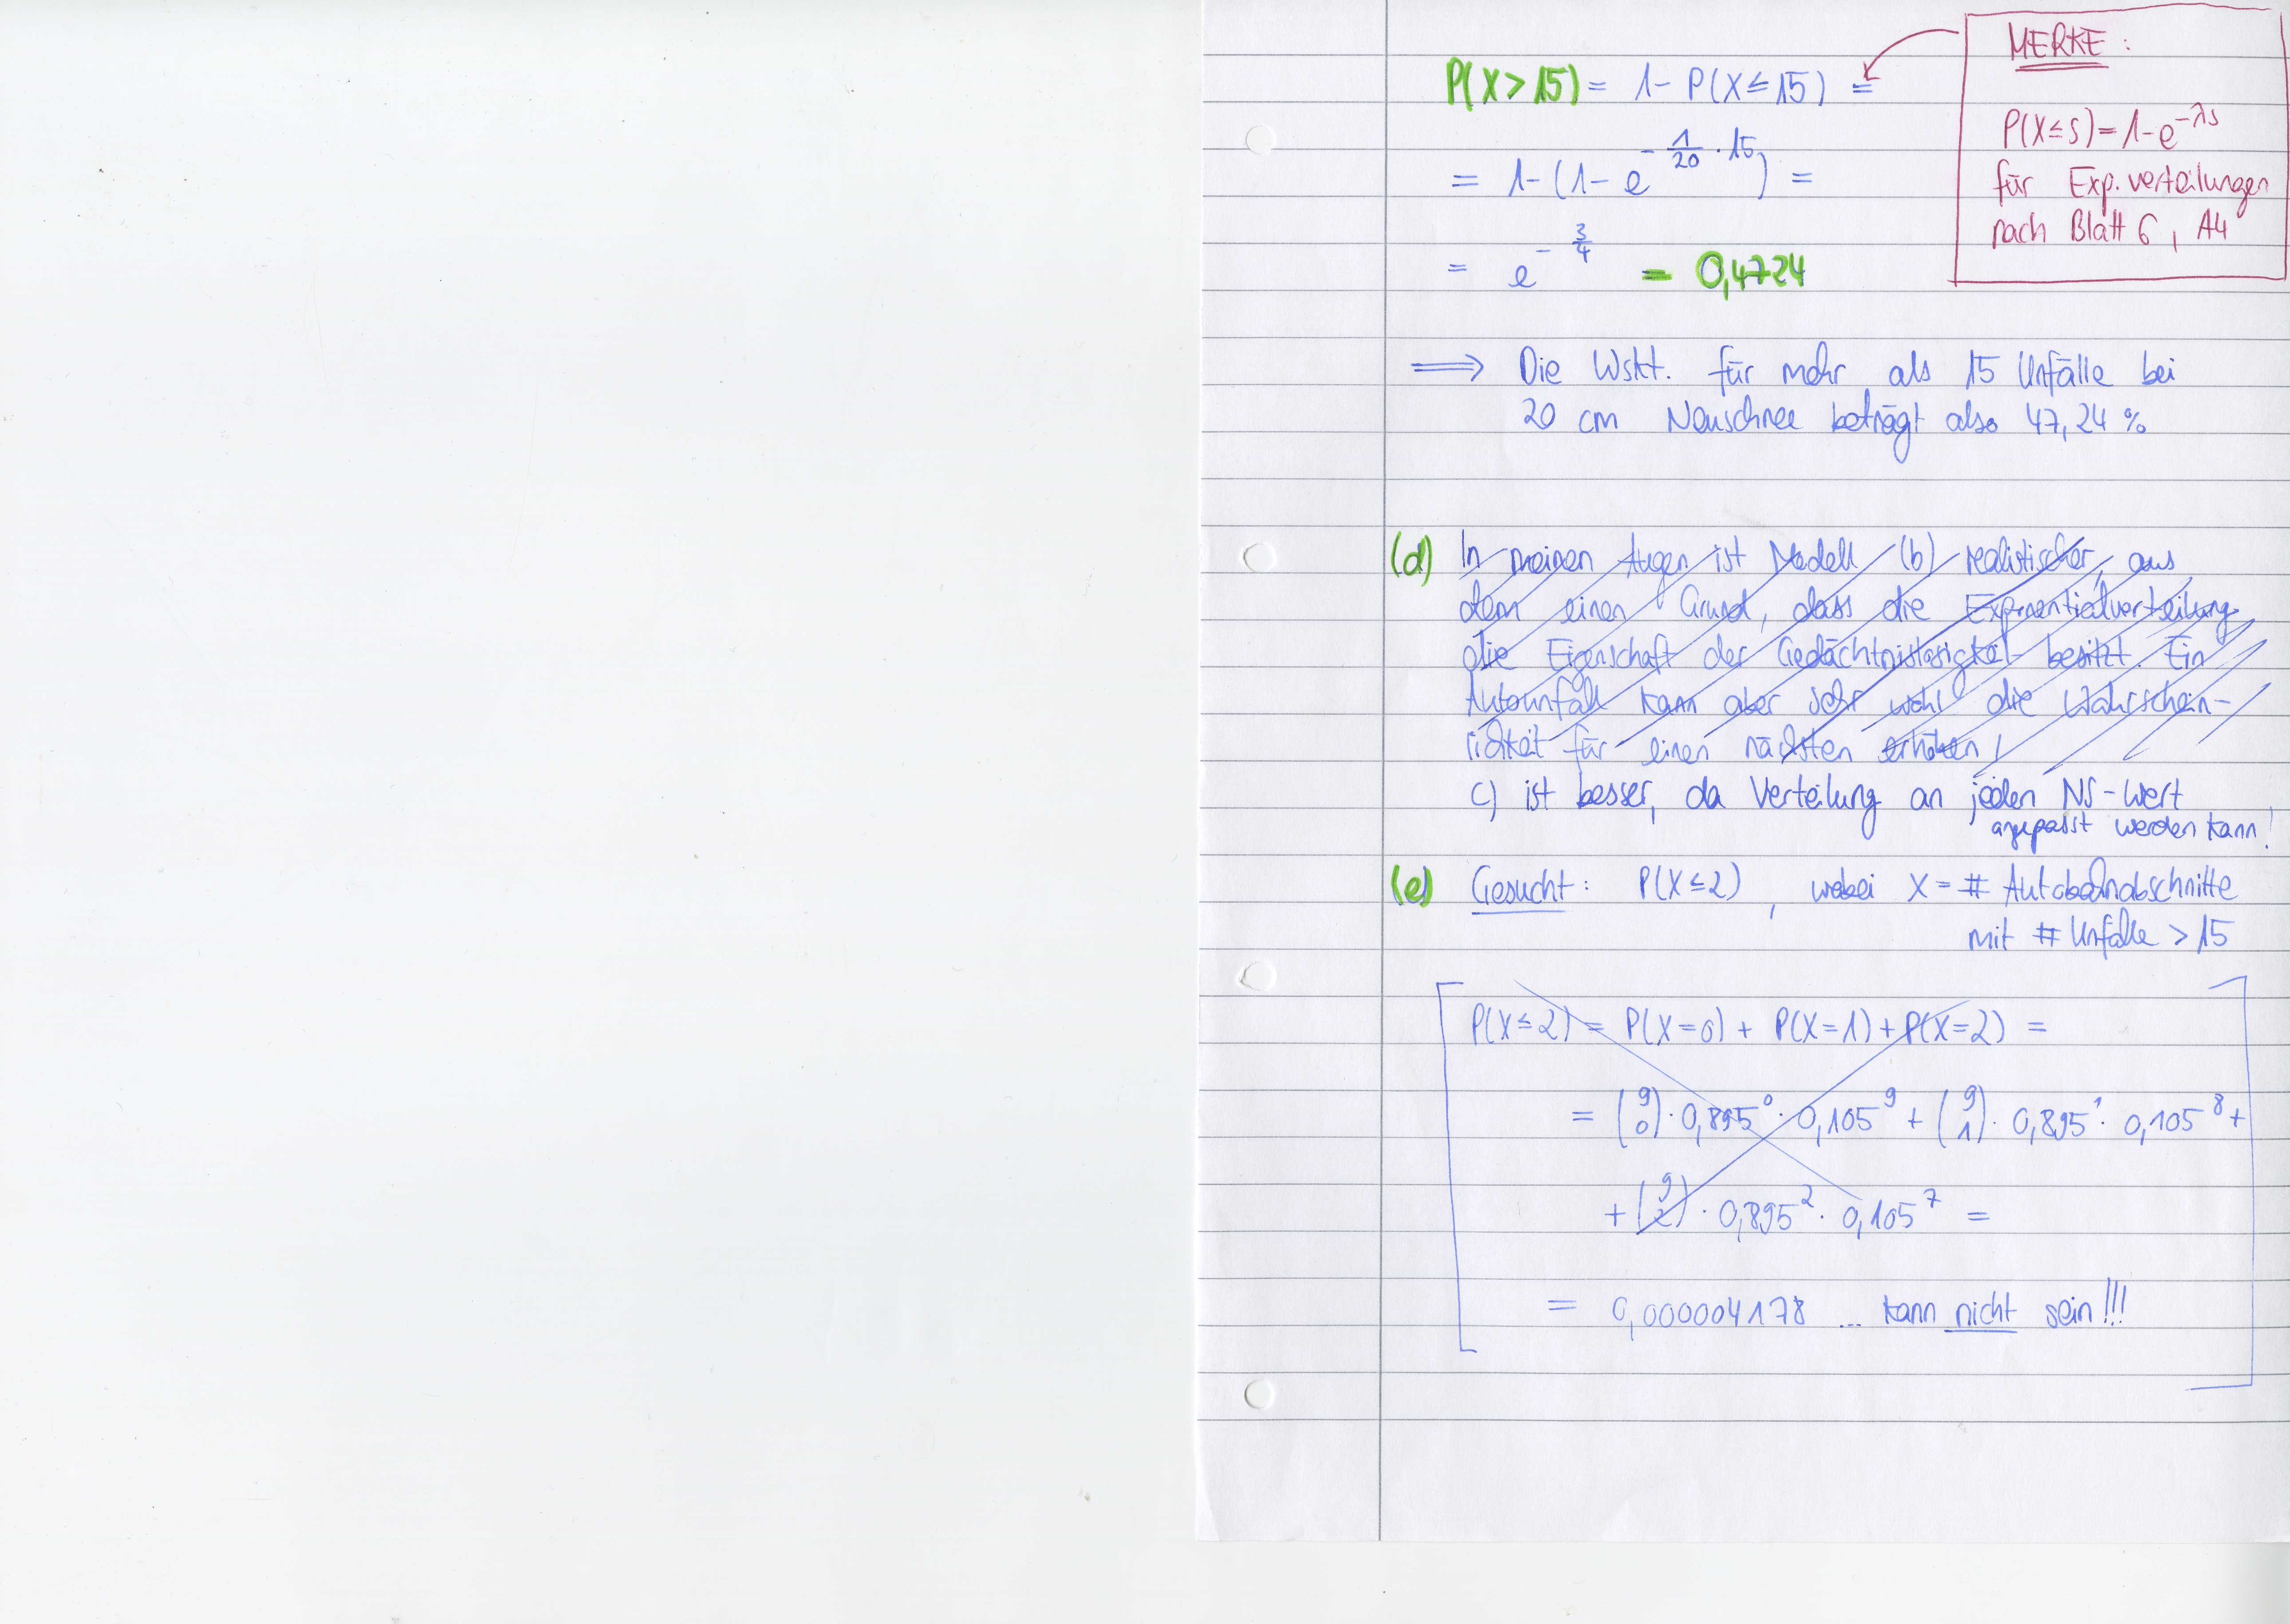 P(X > 15) = 1 - P(X ≤ 15) =
= 1 - (1 - e^{-\frac{1}{20} · 15}) =
= e^{-\frac{3}{4}} = 0,4724
MERKE:
P(X ≤ s) = 1 - e^{-λs}
für Exp.verteilungen
nach Blatt 6, A4
⟹ Die Wskt. für mehr als 15 Unfälle bei
20 cm Neuschnee beträgt also 47,24 %
(d) In meinen Augen ist Modell (b) realistischer, aus
dem einen Grund, dass die Exponentialverteilung
die Eigenschaft der Gedächtnislosigkeit besitzt. Ein
Autounfall kann aber sehr wohl die Wahrschein-
lichkeit für einen nächsten erhöhen!
c) ist besser, da Verteilung an jeden NS-Wert
angepasst werden kann!
(e) Gesucht: P(X ≤ 2), wobei X = # Autobahnabschnitte
mit # Unfälle > 15
P(X ≤ 2) = P(X = 0) + P(X = 1) + P(X = 2) =
= \binom{9}{0} · 0,895^0 · 0,105^9 + \binom{9}{1} · 0,895^1 · 0,105^8 +
+ \binom{9}{2} · 0,895^2 · 0,105^7 =
= 0,000004178 ... kann nicht sein!!!